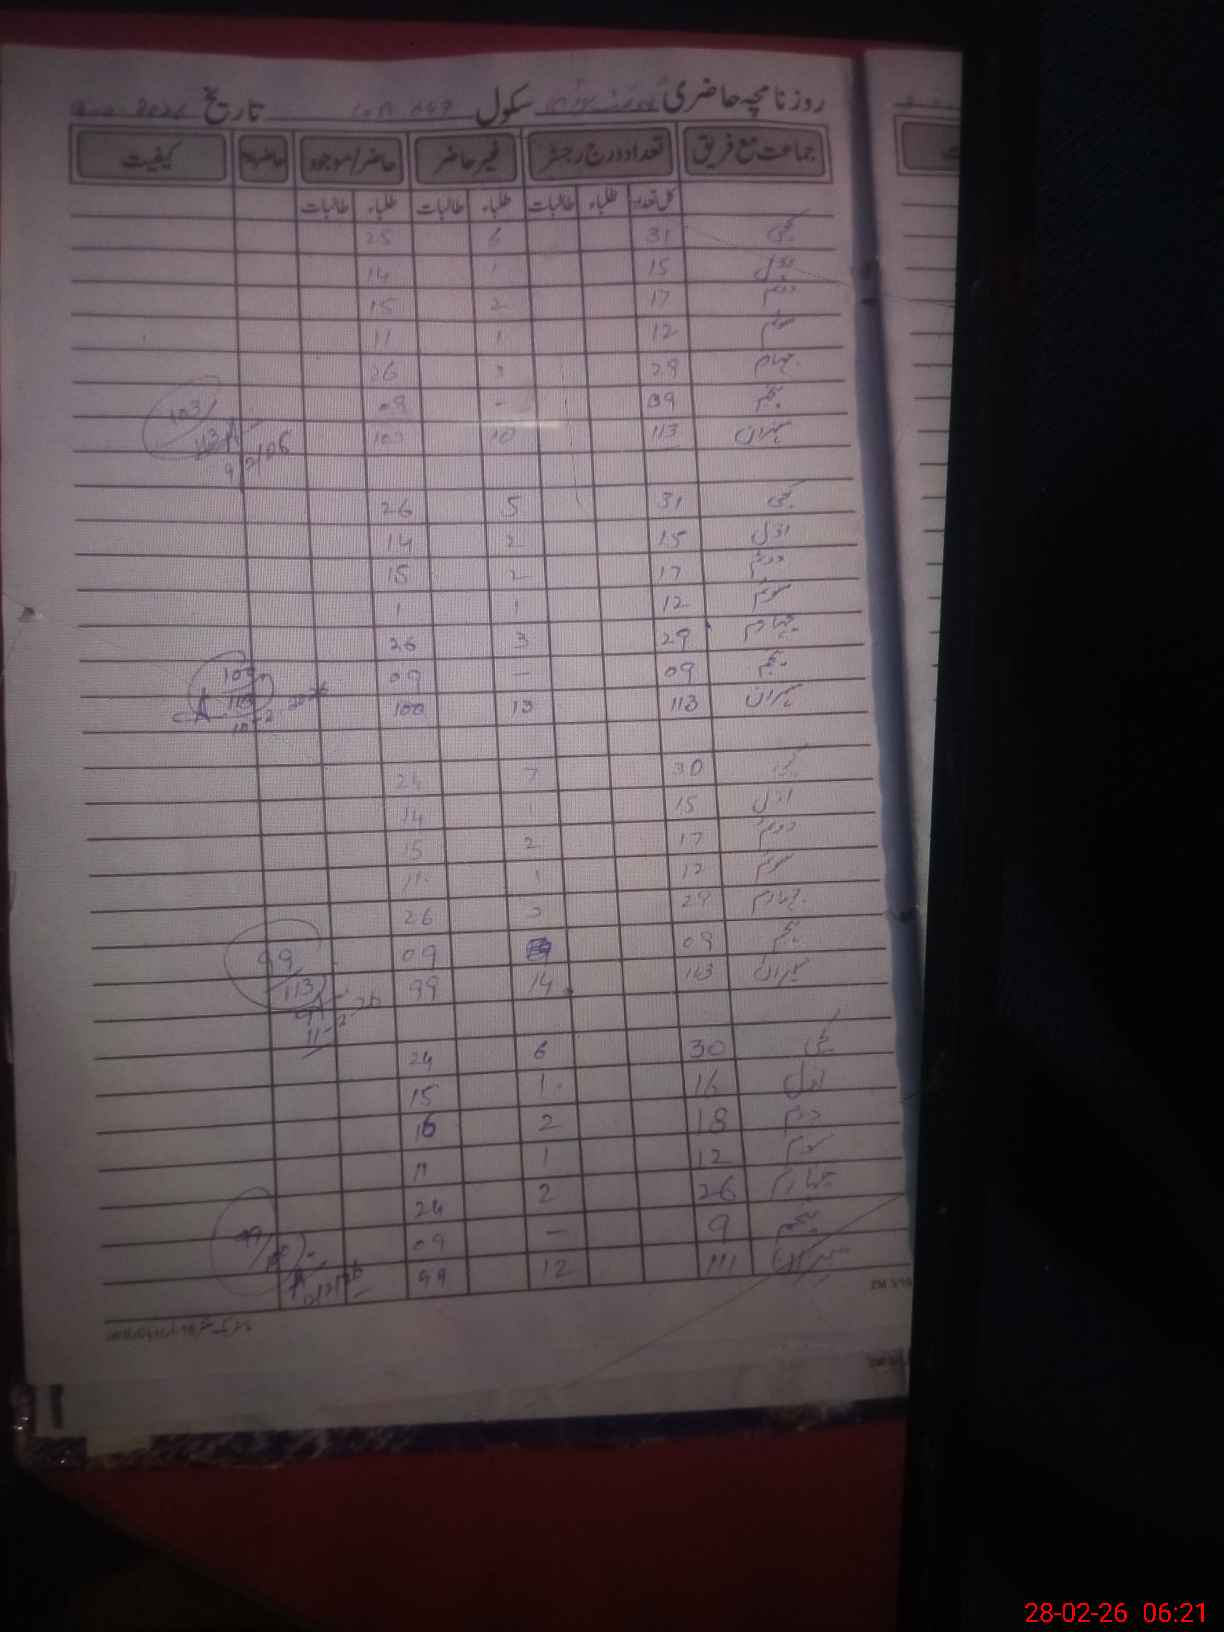 روزنامچہ حاضری گورنمنٹ سکول تاریخ 2026
جماعت مع فریق تعداد درج رجسٹر غیر حاضر حاضر/موجود کیفیت
کل تعداد طلباء طالبات طلباء طالبات طلباء طالبات
کچی 31 6 25
اول 15 1 14
دوئم 17 2 15
سوئم 12 1 11
چہارم 29 3 26
پنجم 09 - 09
میزان 113 10 103
103/113
9/2/26
کچی 31 5 26
اول 15 2 14
دوئم 17 2 15
سوئم 12 1 1
چہارم 29 3 26
پنجم 09 - 09
میزان 113 13 100
100/113
10-2-2026
کچی 30 7 24
اول 15 1 14
دوئم 17 2 15
سوئم 12 1 11
چہارم 29 3 26
پنجم 09 09
میزان 113 14 99
99/113
11-2-26
کچی 30 6 24
اول 16 1 15
دوئم 18 2 16
سوئم 12 1 11
چہارم 26 2 24
پنجم 9 - 09
میزان 111 12 99
99
12/2/26
28-02-26 06:21